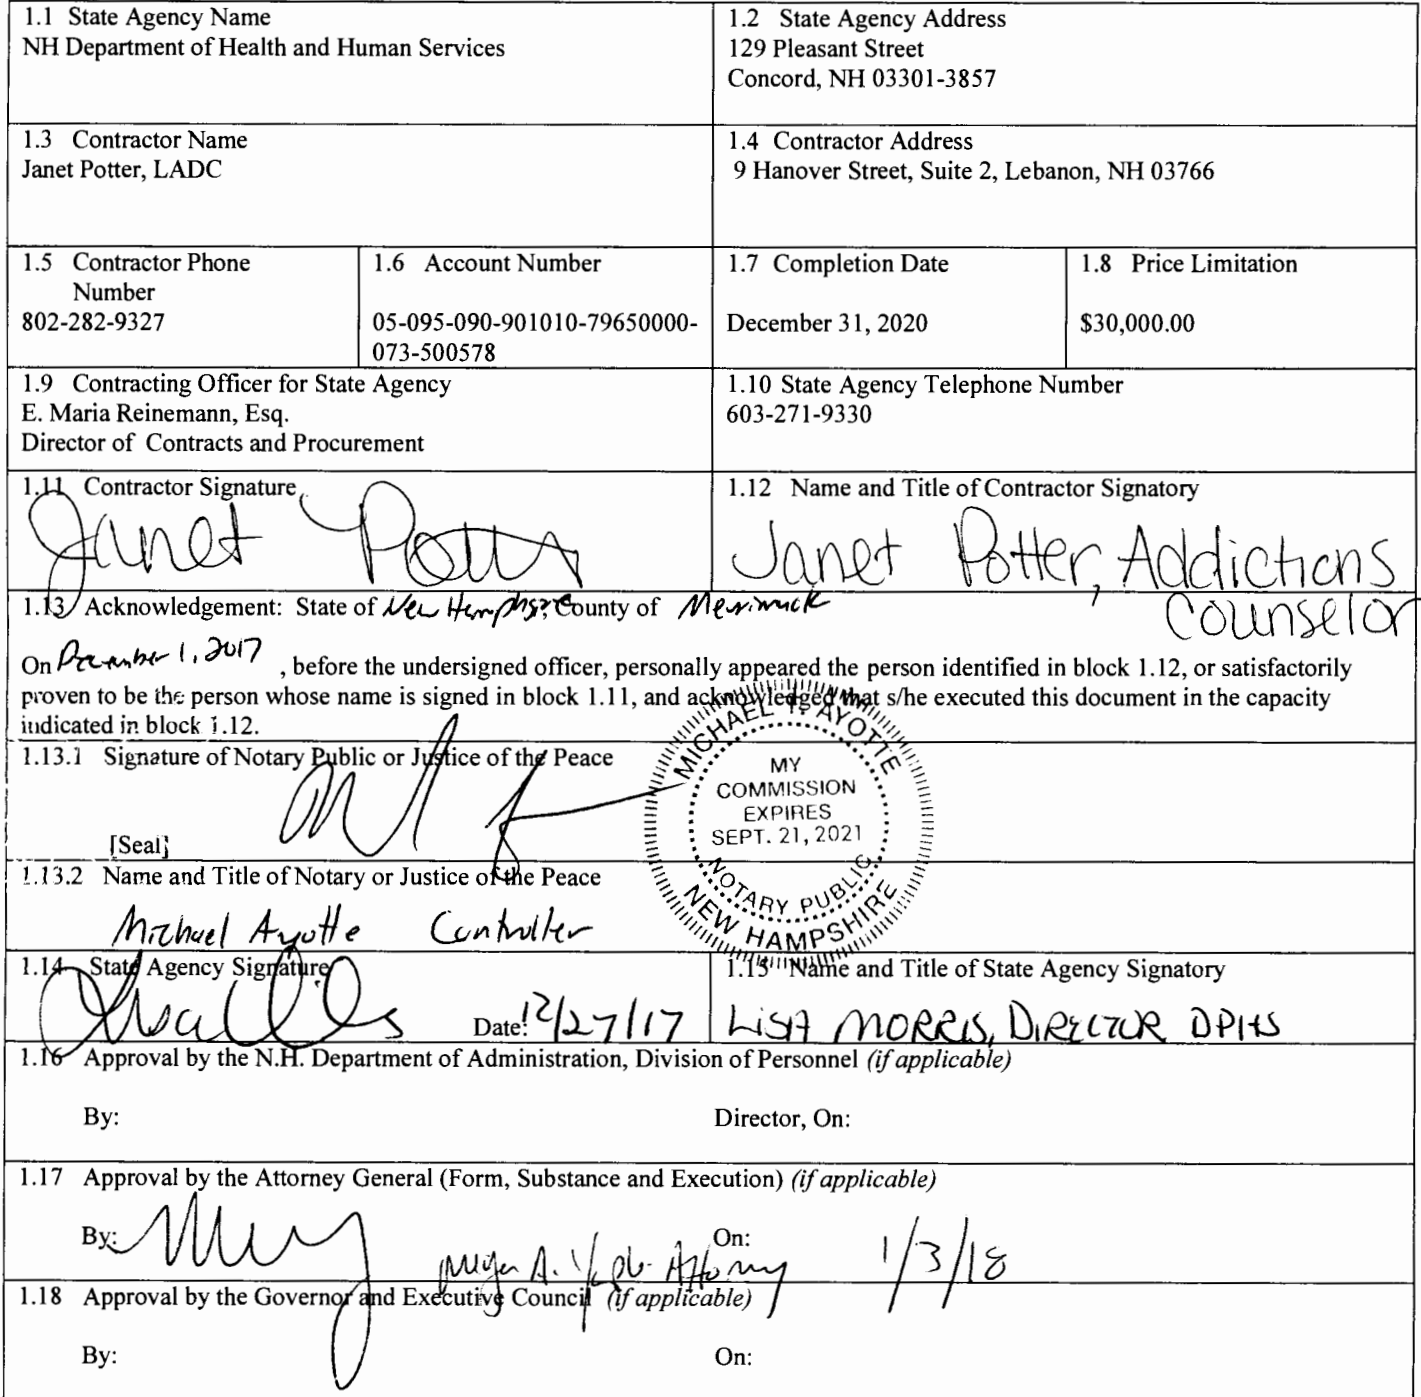 1.1 State Agency Name
NH Department of Health and Human Services
1.2 State Agency Address
129 Pleasant Street
Concord, NH 03301-3857
1.3 Contractor Name
Janet Potter, LADC
1.4 Contractor Address
9 Hanover Street, Suite 2, Lebanon, NH 03766
1.5 Contractor Phone
Number
802-282-9327
1.6 Account Number
05-095-090-901010-79650000-
073-500578
1.7 Completion Date
December 31, 2020
1.8 Price Limitation
$30,000.00
1.9 Contracting Officer for State Agency
E. Maria Reinemann, Esq.
Director of Contracts and Procurement
1.10 State Agency Telephone Number
603-271-9330
1.11 Contractor Signature
Janet Potter
1.12 Name and Title of Contractor Signatory
Janet Potter, Addictions
Counselor
1.13 Acknowledgement: State of New Hampshire, County of Merrimack
On December 1, 2017 , before the undersigned officer, personally appeared the person identified in block 1.12, or satisfactorily
proven to be the person whose name is signed in block 1.11, and acknowledged that s/he executed this document in the capacity
indicated in block 1.12.
1.13.1 Signature of Notary Public or Justice of the Peace
[Seal]
MICHAEL T. AYOTTE
MY
COMMISSION
EXPIRES
SEPT. 21, 2021
NOTARY PUBLIC
NEW HAMPSHIRE
1.13.2 Name and Title of Notary or Justice of the Peace
Michael Ayotte Controller
1.14 State Agency Signature
Date: 12/27/17
1.15 Name and Title of State Agency Signatory
LISA MORRIS, DIRECTOR DPHS
1.16 Approval by the N.H. Department of Administration, Division of Personnel (if applicable)
By: Director, On:
1.17 Approval by the Attorney General (Form, Substance and Execution) (if applicable)
By: A. Attorney On: 1/3/18
1.18 Approval by the Governor and Executive Council (if applicable)
By: On: